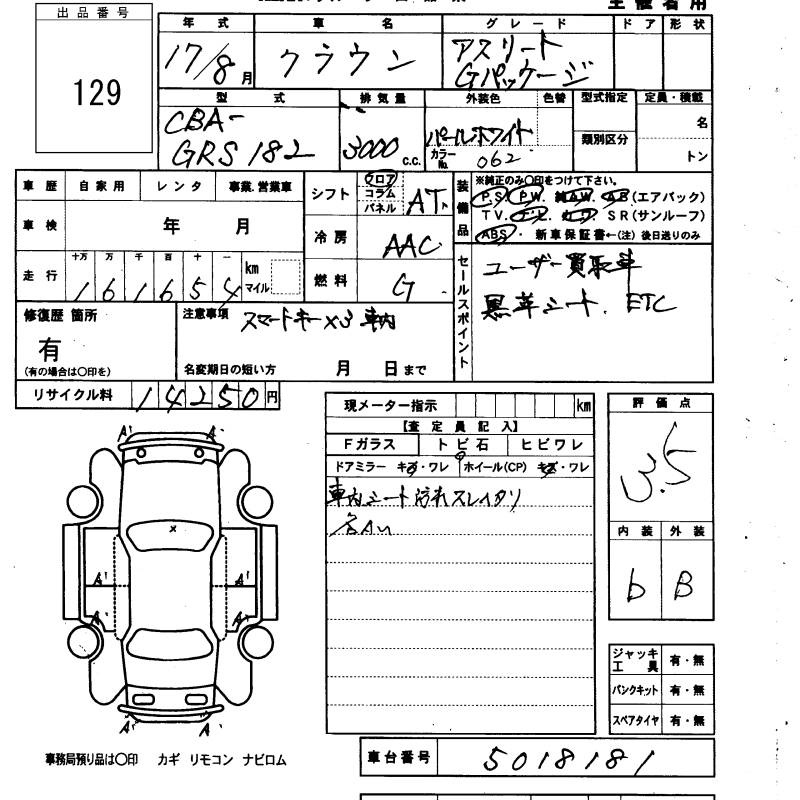 主催者用
出品番号
129
年式 車名 グレード ドア 形状
17/8月 クラウン アスリート Gパッケージ
型式 排気量 外装色 色替 型式指定 定員・積載
CBA-
GRS182 3000 c.c. パールホワイト 類別区分 名
カラーNo. 062 トン
車歴 自家用 レンタ 事業.営業車
車検 年 月
走行 十万 万 千 百 十 一 km マイル
1 6 1 6 5 4
シフト フロア コラム パネル AT
冷房 AAC
燃料 G
装備品
※純正のみ〇印をつけて下さい。
P.S. P.W. 純A.W. A.B(エアバック)
T V. SR(サンルーフ)
ABS. 新車保証書←(注)後日送りのみ
セールスポイント
ユーザー買取車
黒革シート. ETC
修復歴 箇所
有
(有の場合は〇印を)
注意事項 スマートキー×3 車内
名変期日の短い方 月 日まで
リサイクル料 14250円
現メーター指示 km
【査定員記入】
Fガラス トビ石 ヒビワレ
ドアミラー キズ・ワレ ホイール(CP) キズ・ワレ
車内シート汚れスレイタリ
各AU
評価点
3.5
内装 外装
b B
ジャッキ工具 有・無
パンクキット 有・無
スペアタイヤ 有・無
A' A'
×
A' A'
A' A'
A' A'
事務局預り品は〇印 カギ リモコン ナビロム
車台番号 5018181